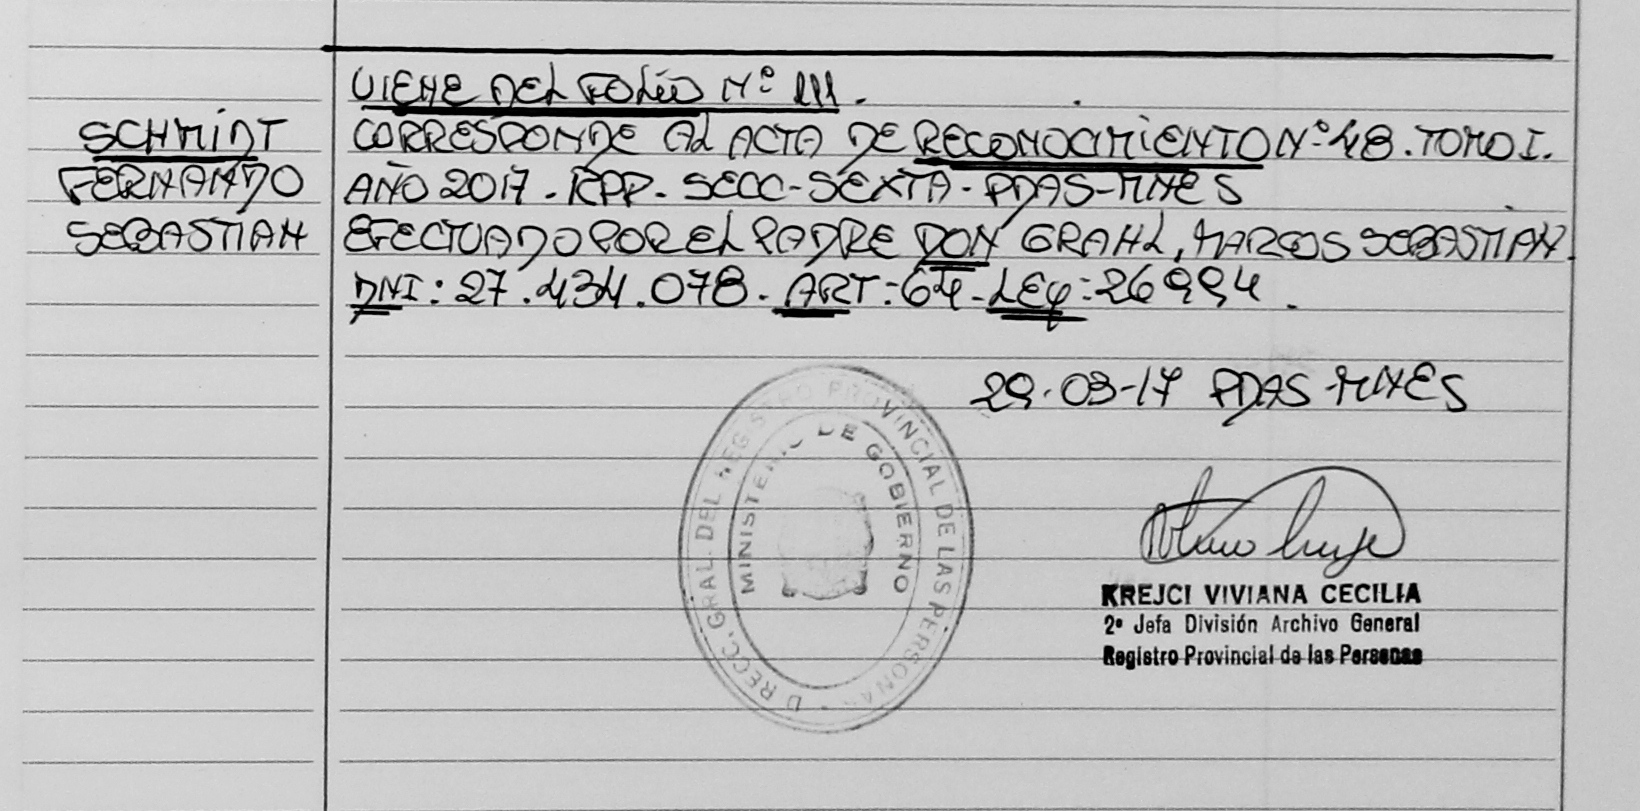 VIENE DEL FOLIO N° 111.
SCHMIDT
FERNANDO
SEBASTIAN
CORRESPONDE AL ACTA DE RECONOCIMIENTO N°48. TOMO I.
AÑO 2017. RPP. SECC-SEXTA-PDAS-MNES
EFECTUADO POR EL PADRE DON GRAHL, MARCOS SEBASTIAN.
DNI: 27.434.078. ART:64-LEY:26994.
29-03-17 PDAS-MNES
DIRECC. GRAL. DEL REGISTRO PROVINCIAL DE LAS PERSONAS
MINISTERIO DE GOBIERNO
KREJCI VIVIANA CECILIA
2º Jefa División Archivo General
Registro Provincial de las Personas